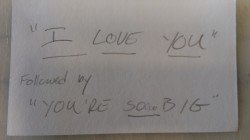 "I LOVE YOU"
Followed by
"YOU'RE Sooo BIG"